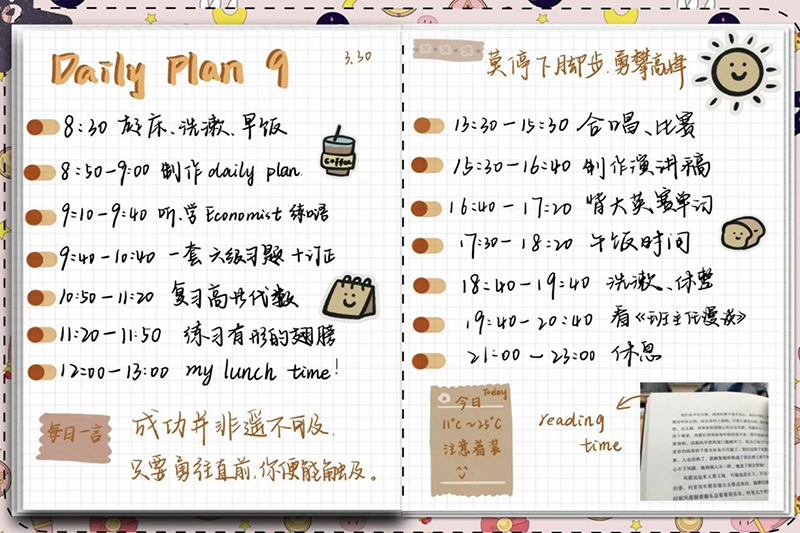 Daily Plan 9
3.30
8:30 起床、洗漱、早饭
8:50-9:00 制作daily plan
coffee
9:10-9:40 听、学Economist 练语
9:40-10:40 一套六级习题+订正
10:50-11:20 复习高等代数
11:20-11:50 练习有形的翅膀
12:00-13:00 my lunch time!
每日一言
成功并非遥不可及,
只要勇往直前,你便能触及。
莫停下脚步,勇攀高峰
13:30-15:30 合唱、比赛
15:30-16:40 制作演讲稿
16:40-17:20 背大英赛单词
17:30-18:20 午饭时间
18:40-19:40 洗漱、休整
19:40-20:40 看《班主任漫谈》
21:00-23:00 休息
Today
今日
11°C~25°C
注意着装
reading
time